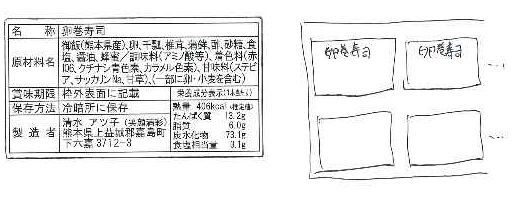 名称 卵巻寿司
原材料名 御飯(熊本県産)、卵、干瓢、椎茸、蒲鉾、酢、砂糖、食
塩、醤油、蜂蜜/調味料(アミノ酸等)、着色料(赤
106、クチナシ青色素、カラメル色素)、甘味料(ステビ
ア、サッカリンNa、甘草)、(一部に卵・小麦を含む)
賞味期限 枠外表面に記載
保存方法 冷暗所に保存
製造者 清水 アツ子
熊本県上益城郡嘉島町
下六嘉3712-3
栄養成分表示(1本当り)
熱量 406kcal(推定値)
たんぱく質 13.2g
脂質 6.0g
炭水化物 73.1g
食塩相当量 3.1g
卵巻寿司
卵巻寿司